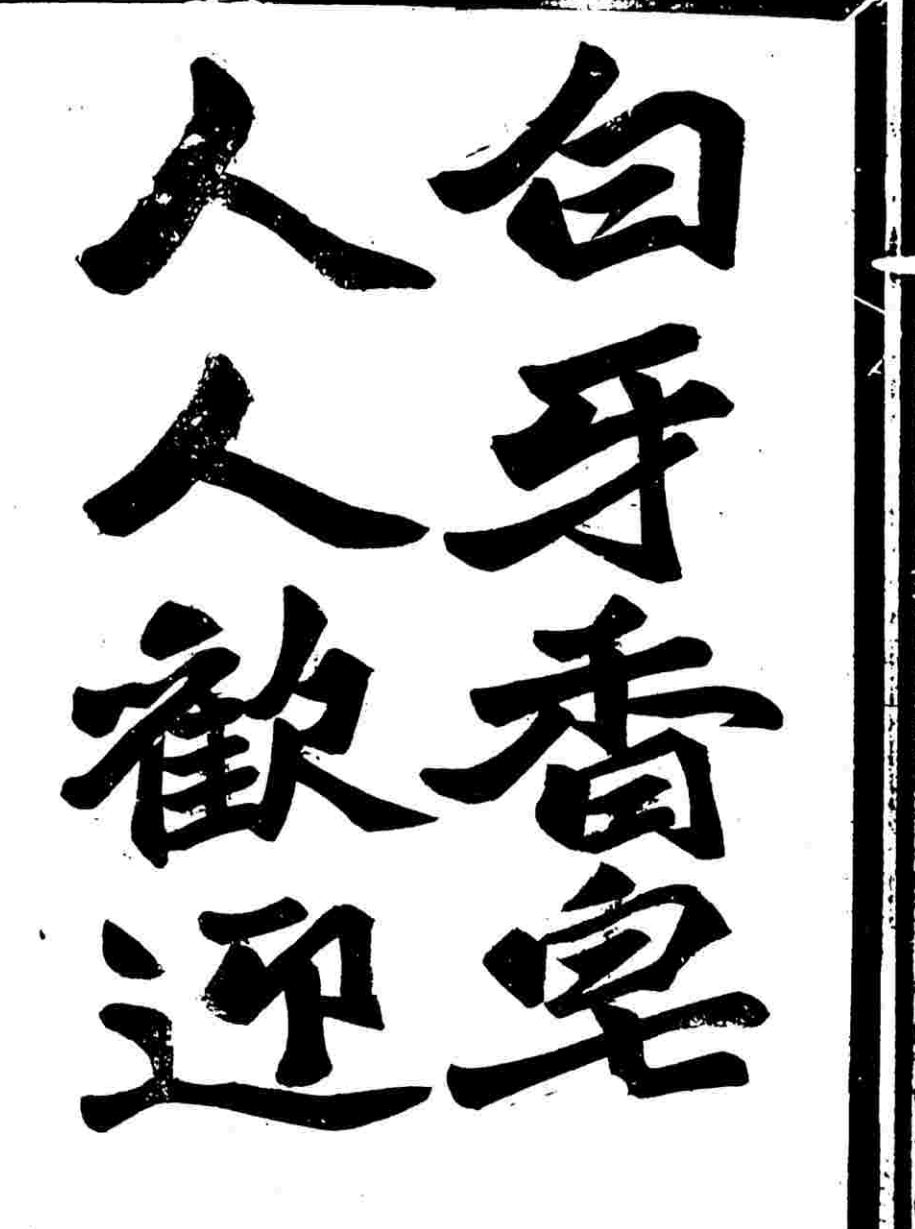 白牙香皂
人人歡迎